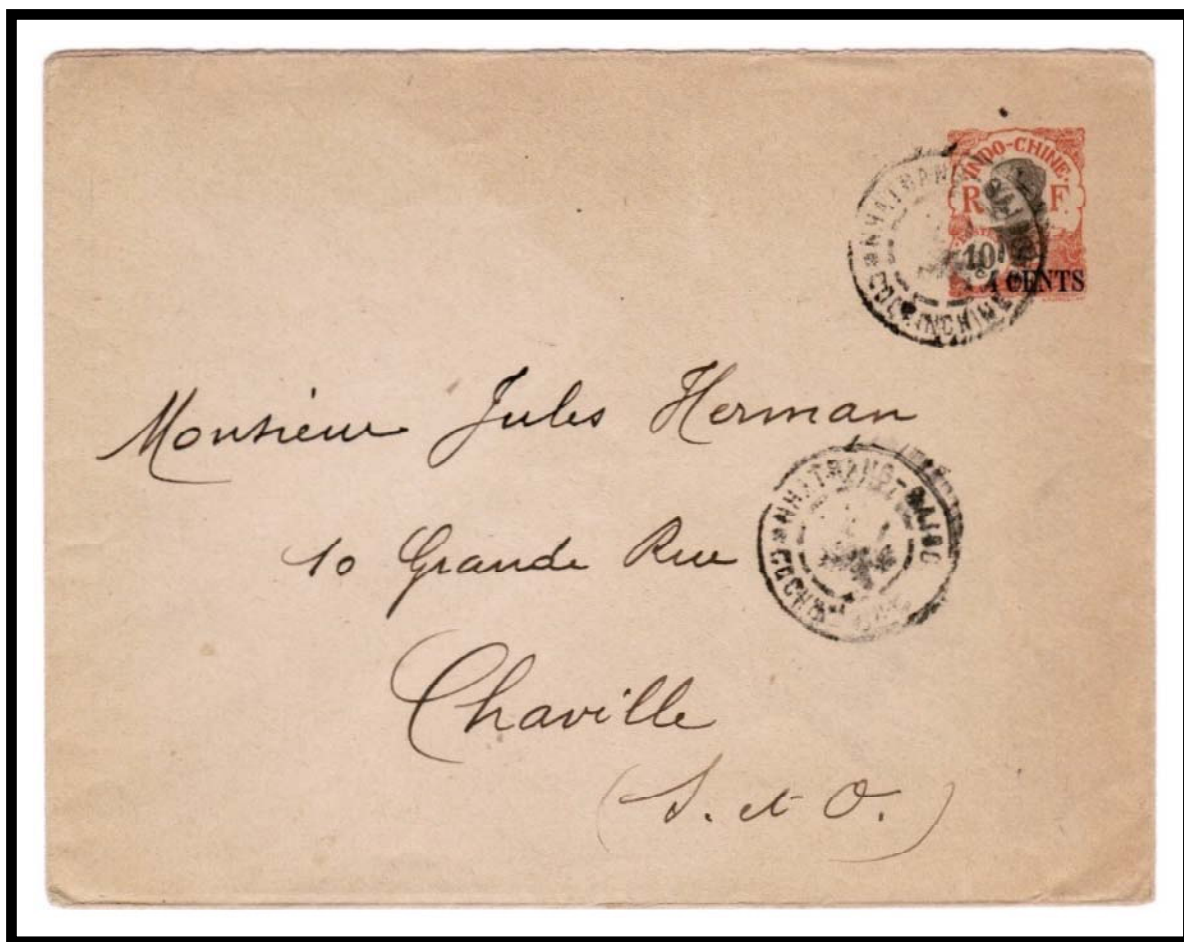 INDO-CHINE
R F
10
4 CENTS
COCHINCHINE
Monsieur Jules Herman
NHATRANG-SAIGO
10 Grande Rue
Chaville
(S. et O.)